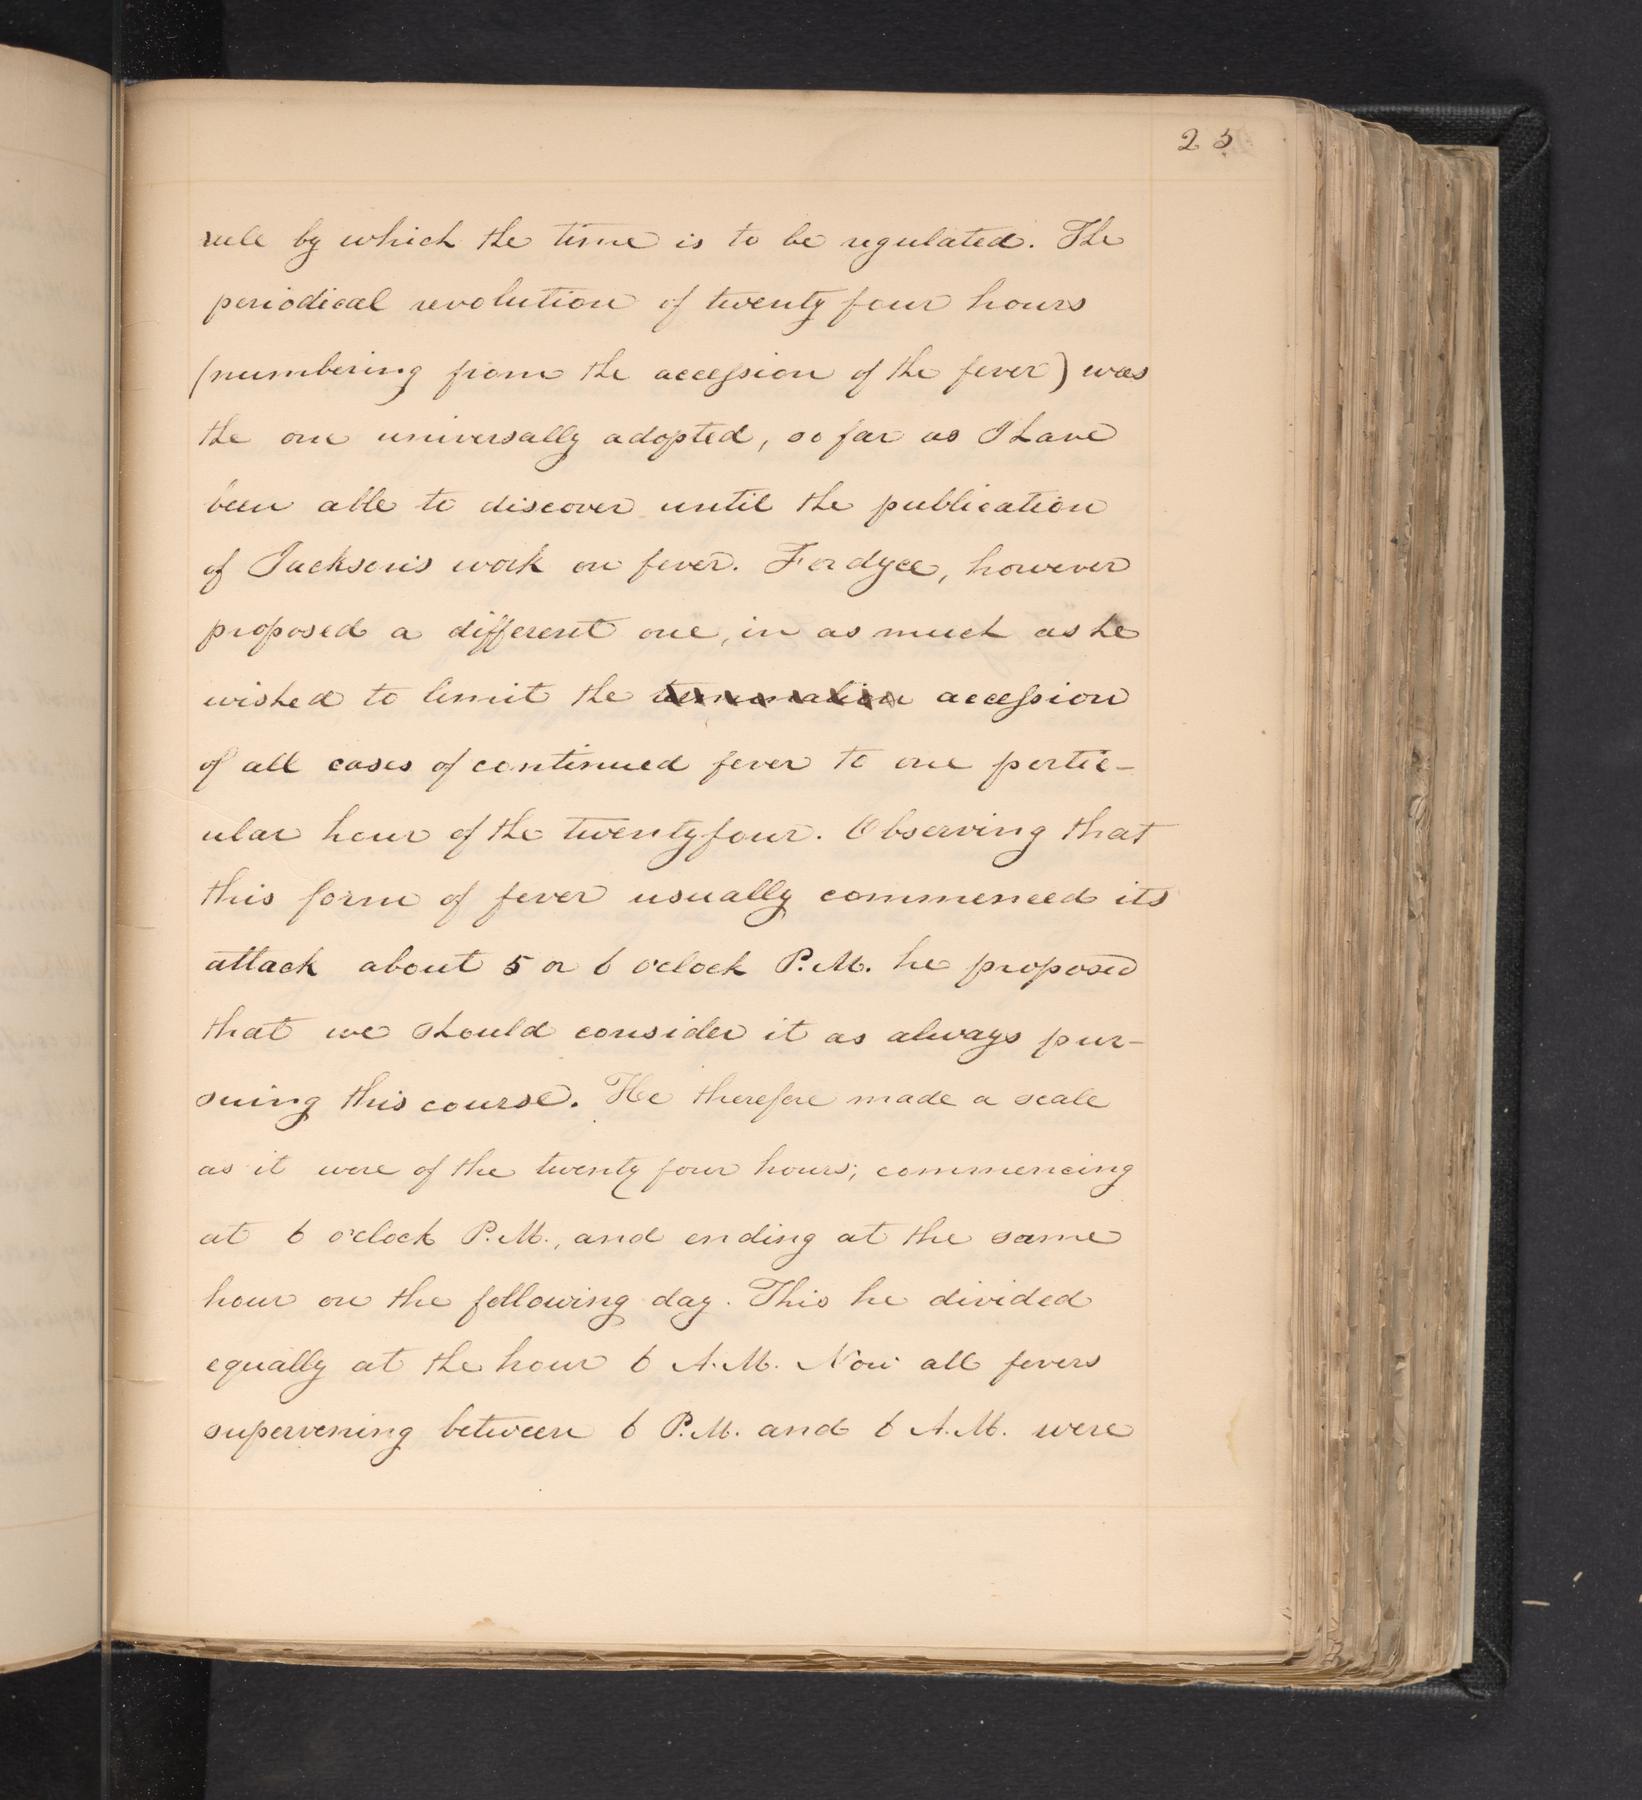 25
rule by which the time is to be regulated. The
periodical revolution of twenty four hours
(numbering from the accession of the fever) was
the one universally adopted, so far as I have
been able to discover until the publication
of Jackson's work on fever. Fordyce, however
proposed a different one, in as much as he
wished to limit the termination accession
of all cases of continued fever to one partic-
ular hour of the twentyfour. Observing that
this form of fever usually commenced its
attack about 5 or 6 o'clock P.M. he proposed
that we should consider it as always pur-
suing this course. He therefore made a scale
as it were of the twenty four hours; commencing
at 6 o'clock P.M., and ending at the same
hour on the following day. This he divided
equally at the hour 6 A.M. Now all fevers
supervening between 6 P.M. and 6 A.M. were